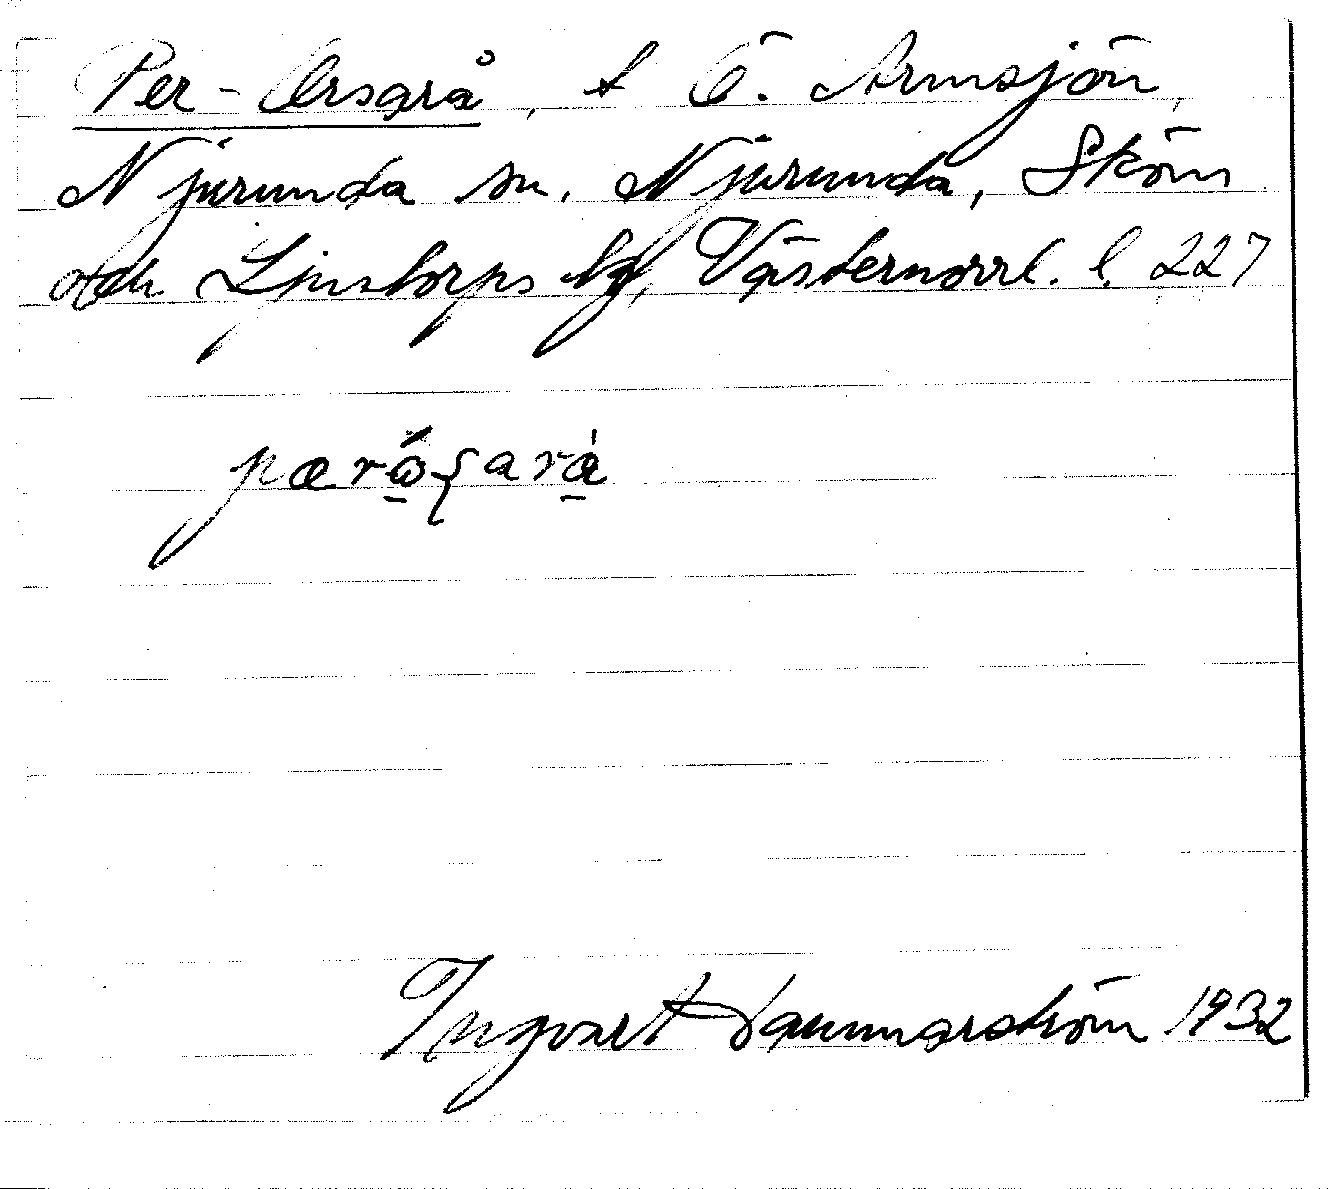 Per-Orsarå, t Ö. Armsjön,
Njurunda sn. Njurunda, Sköns
och Ljustorps tg, Västernorrl. l. 227
Ingvart Hammarström 1932